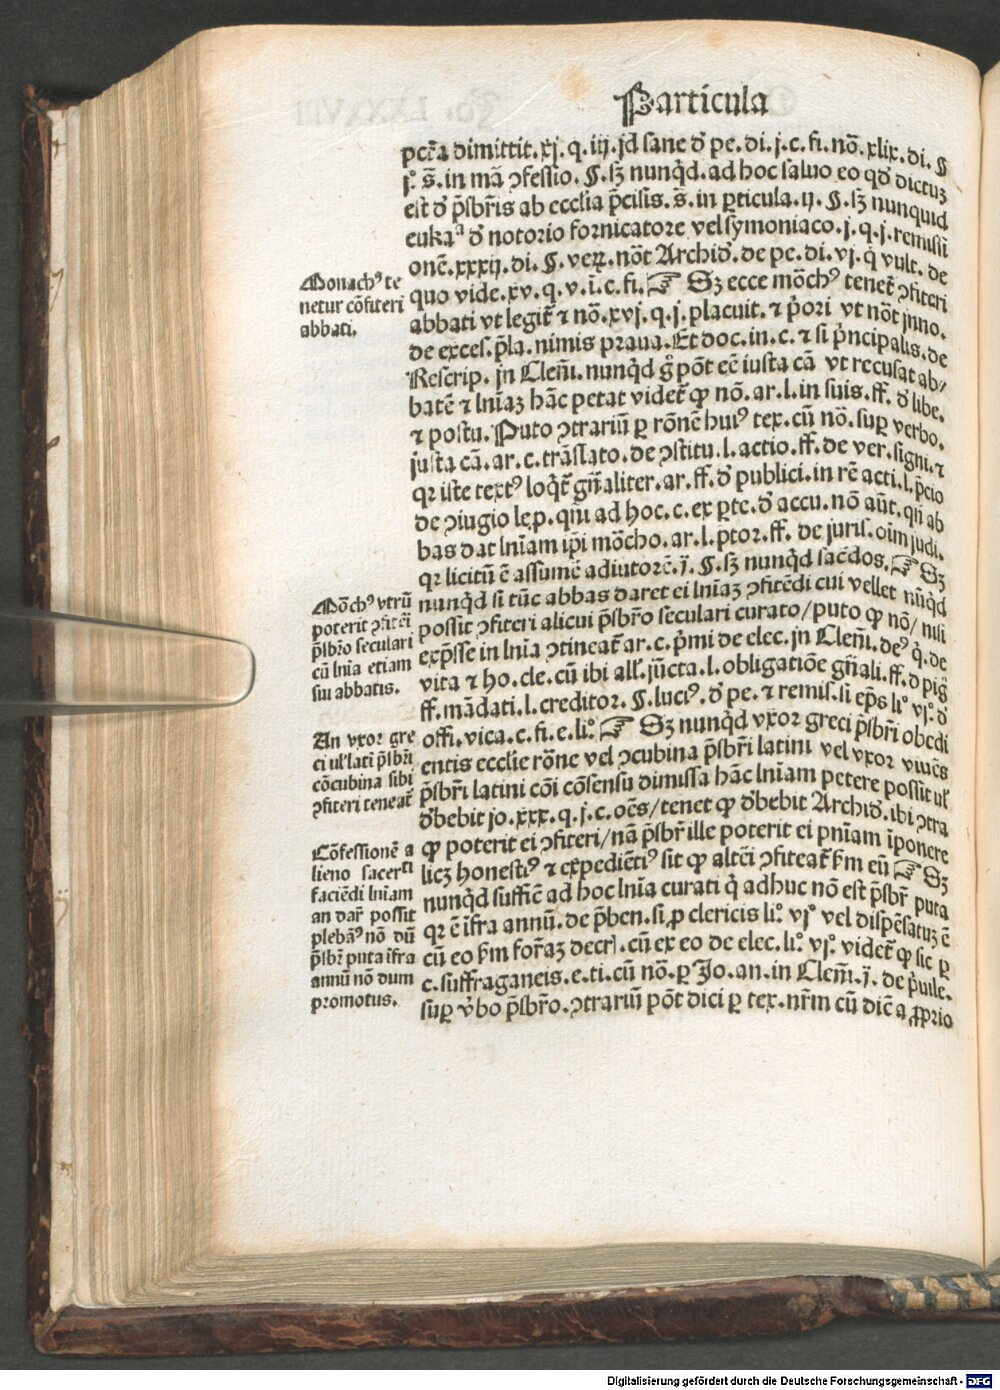 Particula
pctã dimittit. xj. q. iij. jd sane đ pe. di. j. c. fi. nõ. xlix. di. §
j.° s̄. in mã ꝯfessio. §. sꝫ nunqͥd. ad hoc saluo eo qđ dictuꝫ
est đ p̄sbr̄is ab ecclia p̄cisis. s̄. in ꝑticula. ij. §. sꝫ nunquid
đ notorio fornicatore vel symoniaco. j. q. j. remissi
onē. xxxij. di. §. veꝝ. nōt Archiđ. de pe. di. vj. q̇ vult. de
quo vide. xv. q. v. ī. c. fi. ☞ Sꝫ ecce mōchꝰ tenet̄ ꝯfiteri
abbati vt legit̄ ⁊ nõ. xvj. q. j. placuit. ⁊ p̍ori vt nōt jnno.
de exces. p̄la. nimis praua. Et doc. in. c. ⁊ si p̍ncipalis. de
Rescrip. jn Clem̄. nunqͥd gͦ pōt eē iusta cã vt recusat ab⸗
batē ⁊ lnīaꝫ hãc petat videt̄ ꝙ nõ. ar. l. in suis. ff. đ libe.
⁊ postu. Puto ꝯtrariũ ꝑ rōnē huiꝰ tex. cũ nõ. suꝑ verbo.
justa cã. ar. c. trãslato. de ꝯstitu. l. actio. ff. de ver. signi. ⁊
qꝛ iste textꝰ loqͥt̄ gn̄aliter. ar. ff. đ publici. in rē acti. l. p̄cio
de ꝯiugio lep. qn̄ ad hoc. c. ex ꝑte. đ accu. nõ aūt. qn̄ ab
bas dat lnīam ip̄i mōcho. ar. l. p̄tor. ff. de juris. oīm judi.
qꝛ licitũ ē assumē adiutorē. j̄. §. sꝫ nunqͥd sac̄dos. ☞ Sꝫ
nunqͥd si tūc abbas daret ei lnīaꝫ ꝯfitēdi cui vellet nũqͥd
possit ꝯfiteri alicui p̄sbr̄o seculari curato/ puto ꝙ nõ/ nisi
exp̄sse in lnīa ꝯtineat̄ ar. c. p̍mi de elec. jn Clem̄. deꝰ q̇. de
vita ⁊ ho. cle. cũ ibi all̄. jũcta. l. obligatiõe gn̄ali. ff. đ pig̃
ff. mãdati. l. creditor. §. luciꝰ. đ pe. ⁊ remis. si ep̄s li.° vj.° đ
offi. vica. c. fi. e. li.° ☞ Sꝫ nunqͥd vxor greci p̄sbr̄i obedi
entis ecclie rōne vel ꝯcubina p̄sbr̄i latini vel vxor viuēs
p̄sbr̄i latini cōi cōsensu dimissa hãc lnīam petere possit ul̓
đbebit jo. xxx. q. j. c. oēs/ tenet ꝙ đbebit Archiđ. ibi ꝯtra
ꝙ poterit ei ꝯfiteri/ nã p̄sbr̄ ille poterit ei pnīam īponere
licꝫ honestiꝰ ⁊ expediētiꝰ sit ꝙ alt̄ei ꝯfiteat̄ ẜm eũ ☞ Sꝫ
nunqͥd sufficē ad hoc lnīa curati q̇ adhuc nõ est p̄sbr̄ puta
qꝛ ē īfra annũ. de p̄ben. si. ꝓ clericis li.° vj° vel dispēsatuꝫ ē
cũ eo ẜm formaꝫ decr̄l. cũ ex eo de elec. li.° vj.° videt̄ ꝙ sic ꝑ
c. suffraganeis. e. ti. cũ nõ. ꝑ Jo. an. in Clem̄. j̄. de p̍uile.
suꝑ v̍bo p̄sbr̄o. ꝯtrariũ pōt dici ꝑ tex. nr̄m cũ dicē a ꝓprio
Monachꝰ te
netur cõfiteri
abbati.
Mōchꝰ vtrũ
poterit ꝯfitēi
p̄sbr̄o seculari
cũ lnīa etiam
sui abbatis.
An vxor gre
ci ul̓ lati p̄sbr̄i
cõcubina sibi
ꝯfiteri teneat̄
Cõfessionē a
lieno sacerti
faciēdi lnīam
an dar̄ possit
plebãꝰ nõ dũ
p̄sbr̄ puta īfra
annũ nõ dum
promotus.
Digitalisierung gefördert durch die Deutsche Forschungsgemeinschaft - DFG